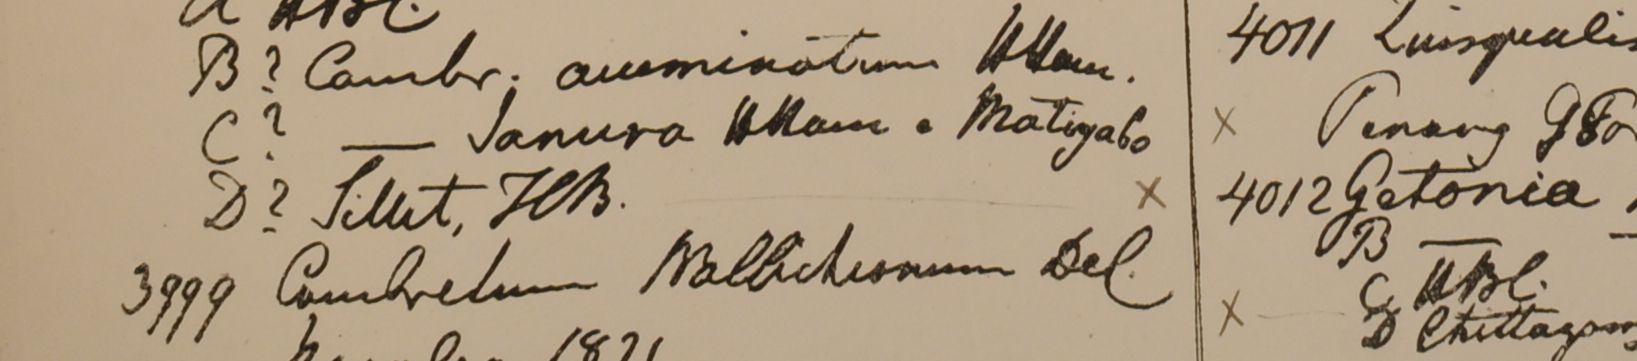 B? Combr. acuminatum HHam.
C? — Sanura HHam. Matigabo
D? Sillet, HB.
3999 Combretum Wallichianum Del.
1821
4011 Quisqualis
Penang G
4012 Getonia
B —
C HBC.
D Chittagong